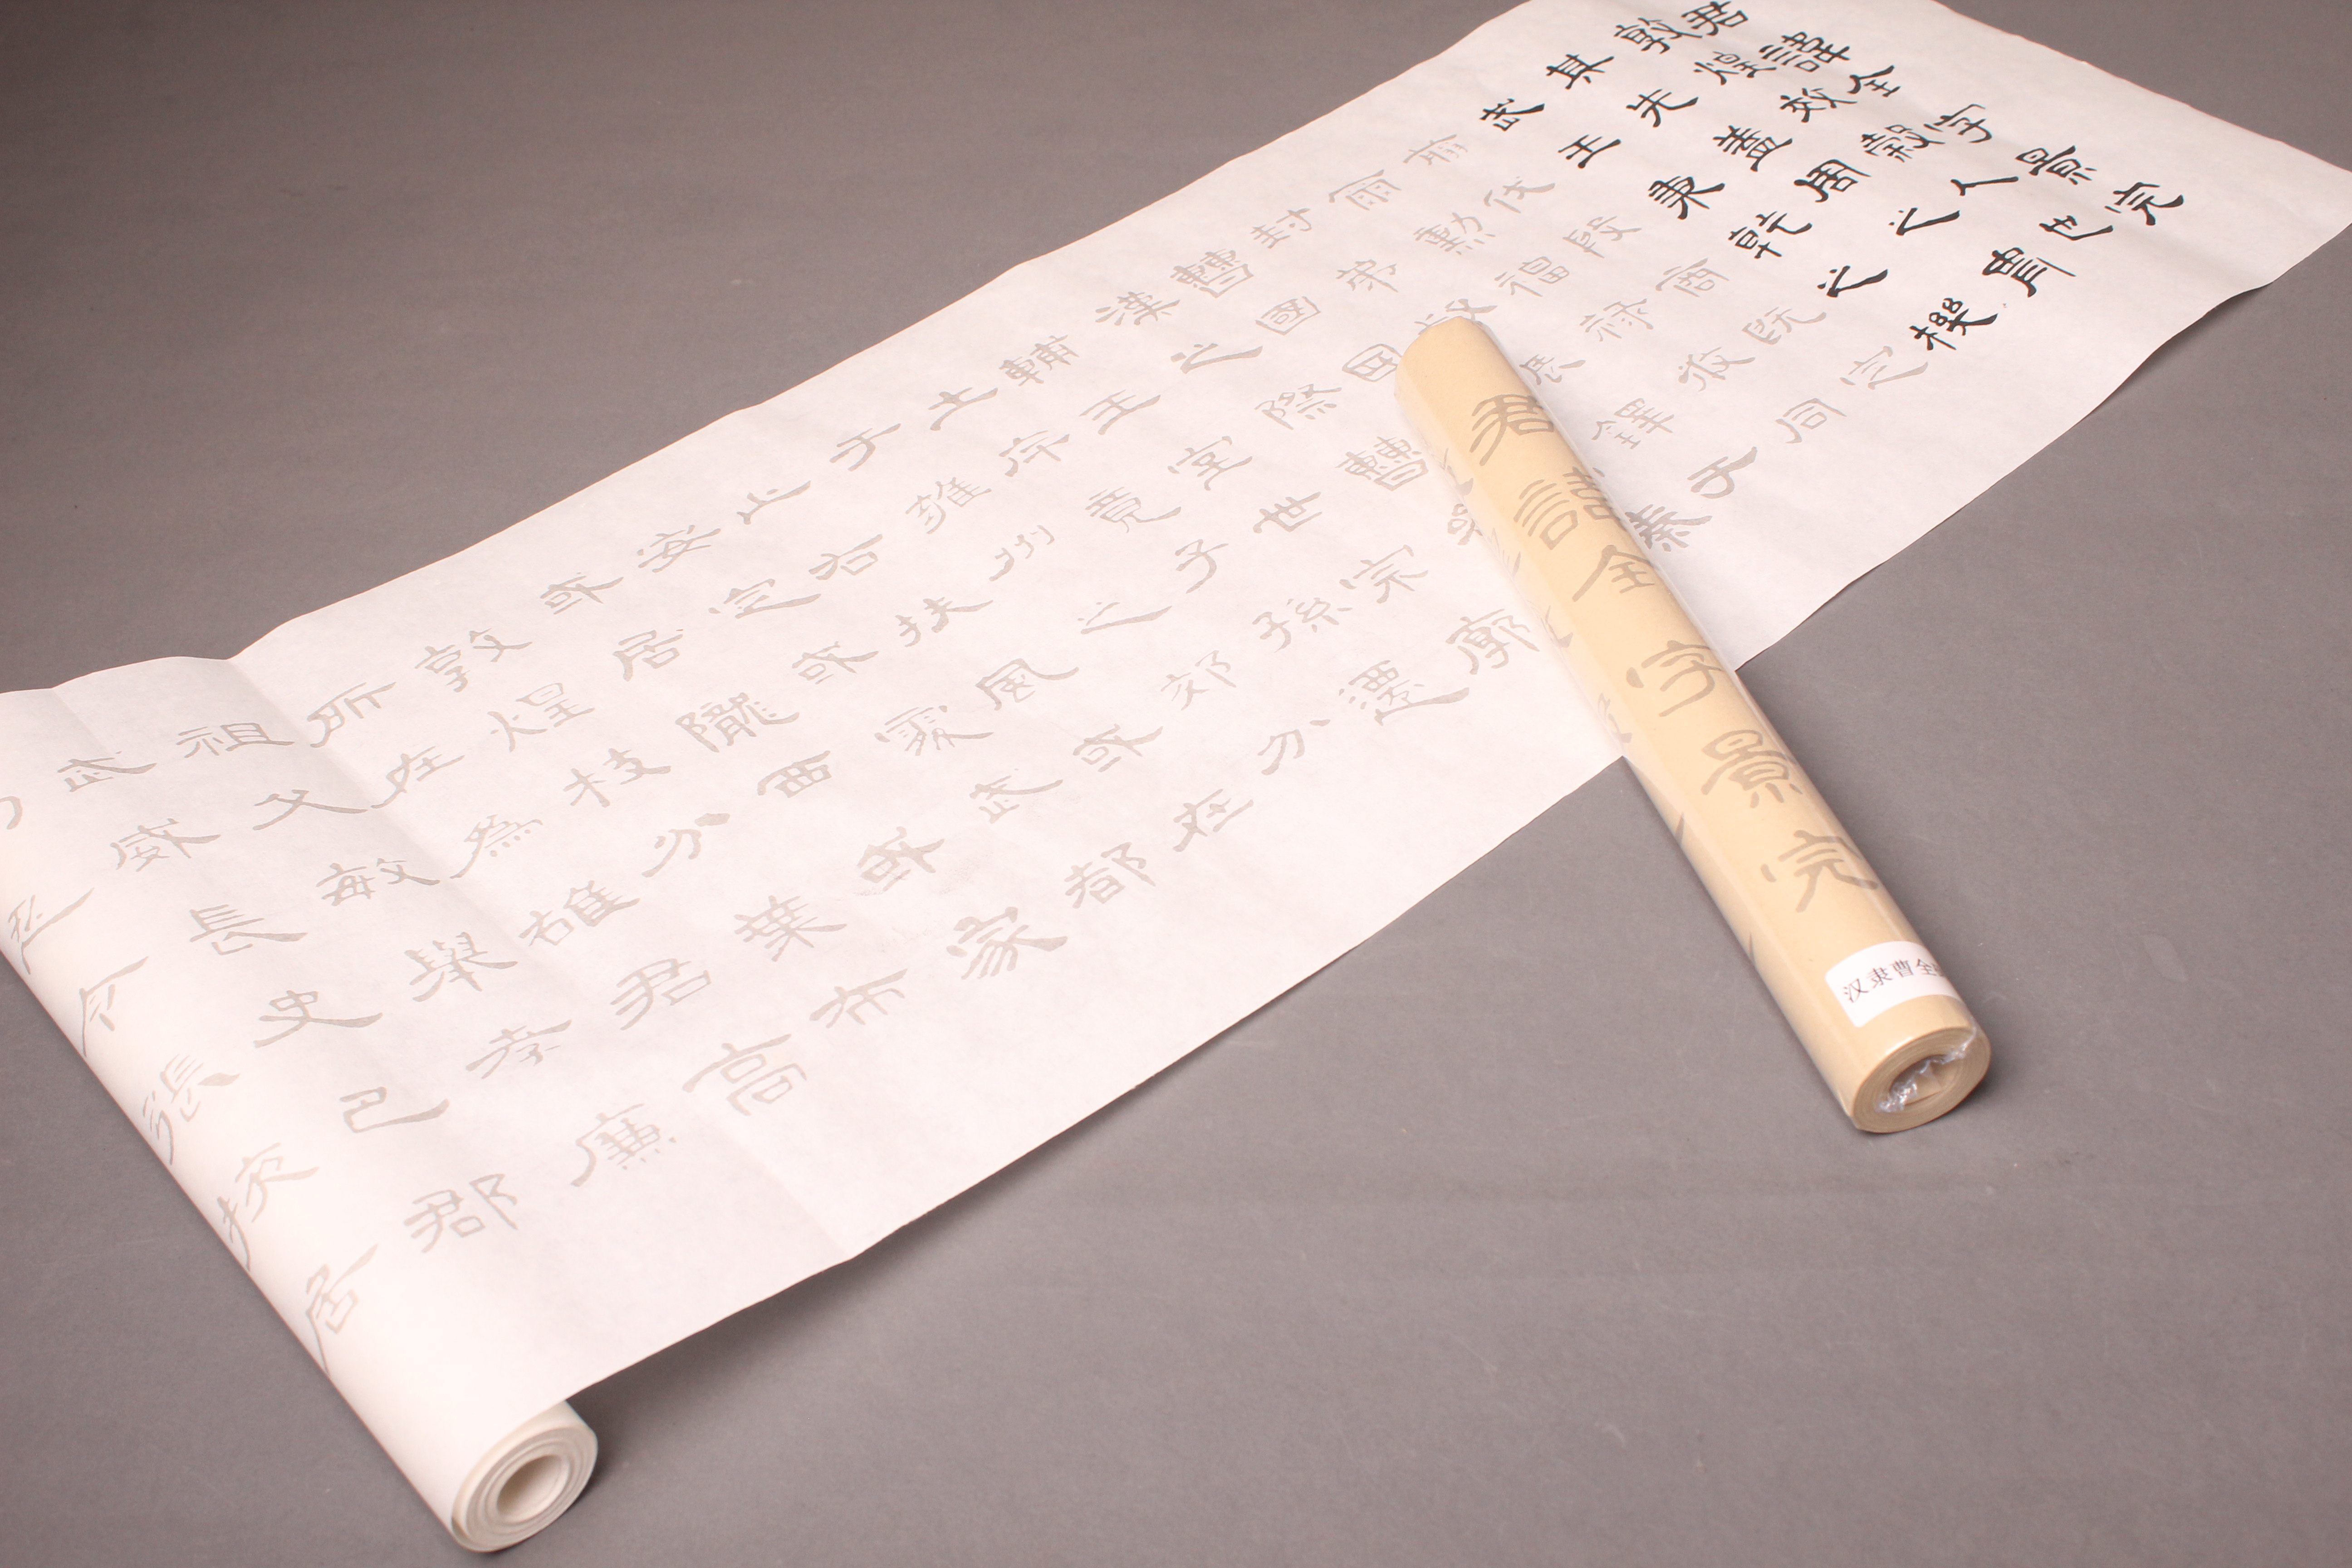 君諱全字景完
敦煌效穀人也
其先蓋周之胄
武王秉乾之機
翦伐殷商既定
爾勳福祿攸同
封弟叔鐸于
曹國因秦
漢之際曹
輔王室世宗廓
土斥竟子孫遷
于雍州之郊分
止右扶風或在
安定或處武都
或居隴西或家
敦煌枝分葉布
所在為雄君高
祖父敏舉孝廉
武威長史巴郡
令張掖居
君諱全字景完
汉隶曹全